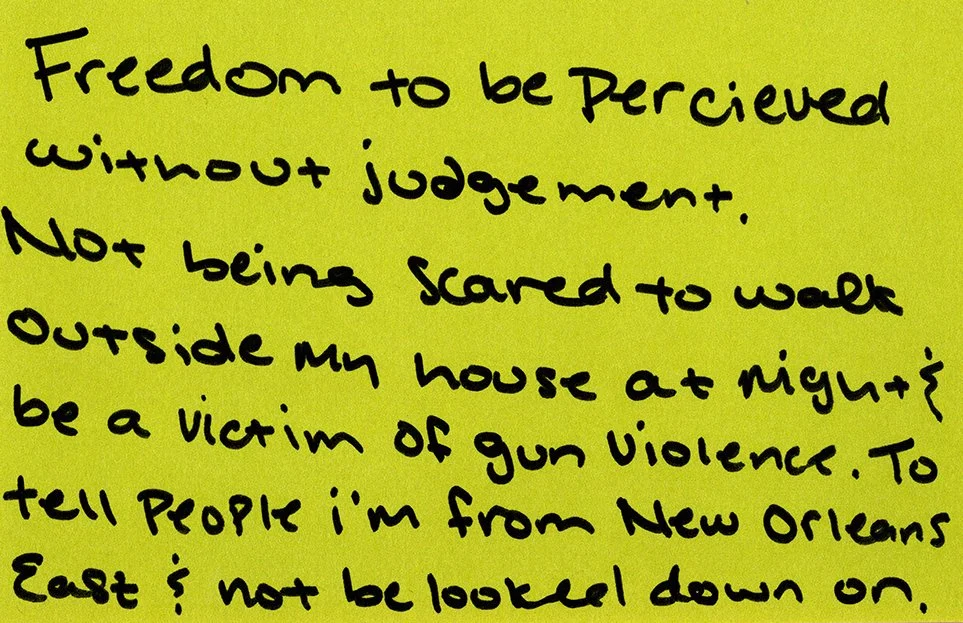 Freedom to be percieved
without judgement.
Not being scared to walk
outside my house at night &
be a victim of gun violence. To
tell people i'm from New Orleans
East & not be looked down on.